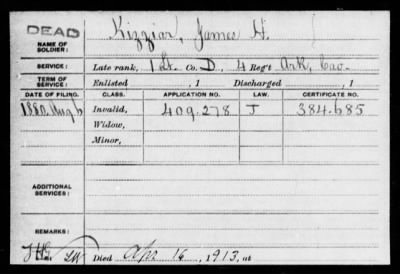 DEAD
NAME OF SOLDIER: Kizziar, James H.
SERVICE: Late rank, 1 Lt. Co. D, 4 Reg't Ark. Cav.
TERM OF SERVICE: Enlisted , 1 Discharged , 1
DATE OF FILING. CLASS. APPLICATION NO. LAW. CERTIFICATE NO.
1880. Aug 6 Invalid, 409.278 J 384.685
Widow,
Minor,
ADDITIONAL SERVICES:
REMARKS:
Died Apr 16, 1913, at